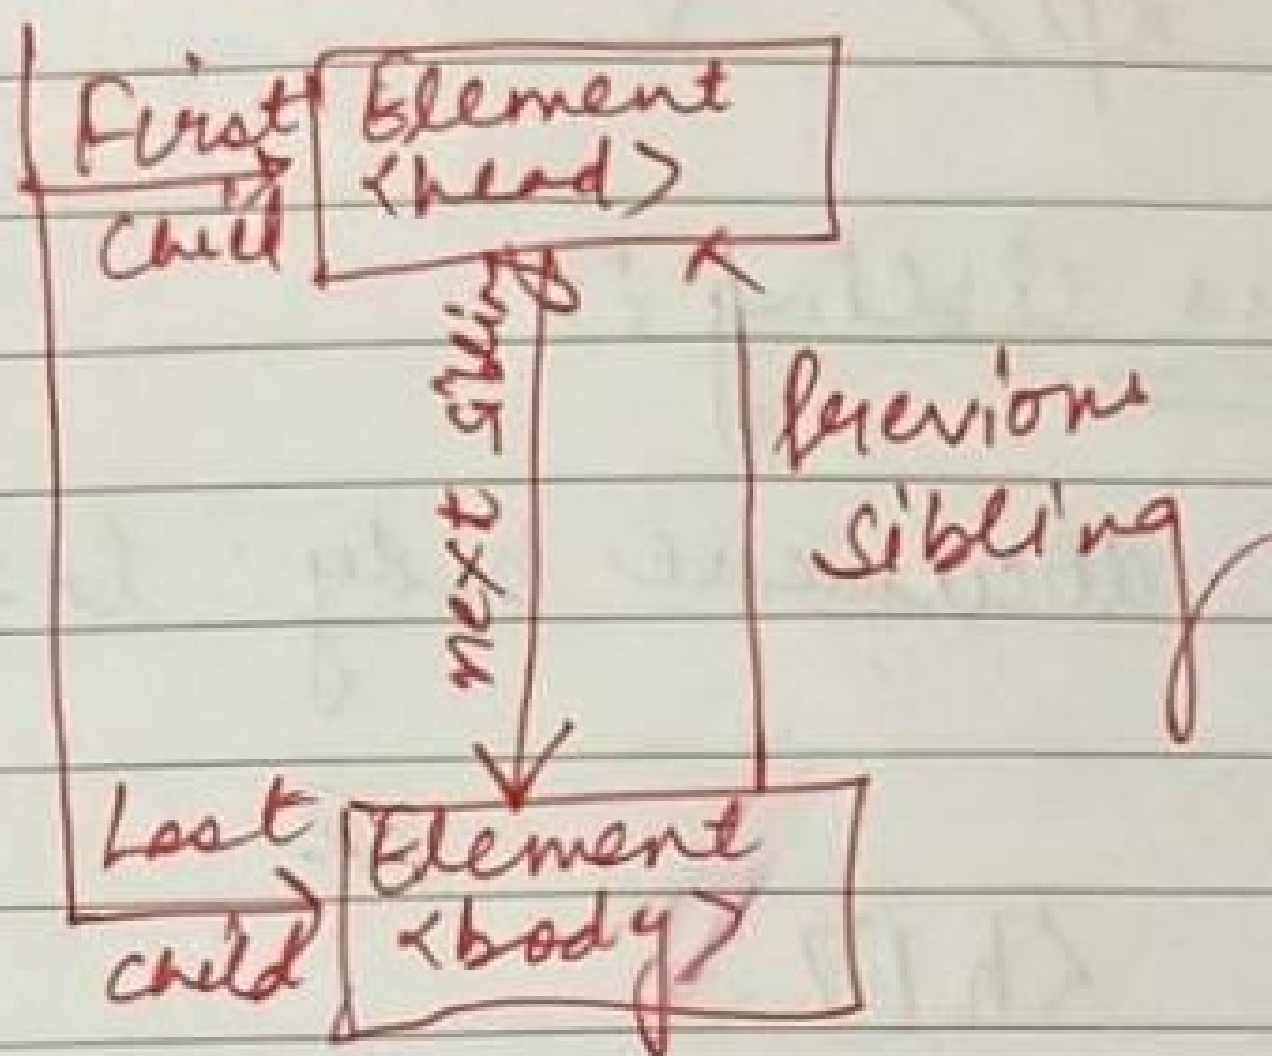 First
Child
Element
<head>
next sibling
previous
sibling
Last
child
Element
<body>